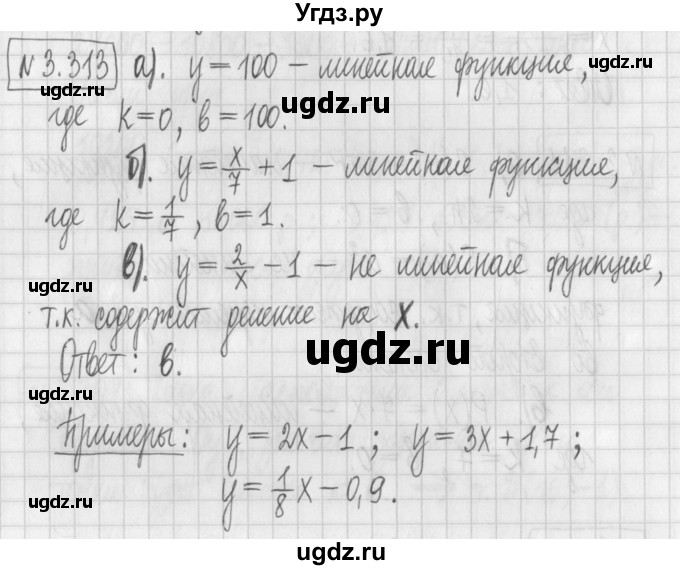 Угдз.ру
N 3.313 а). y = 100 – линейная функция,
ugdz.ru
где k = 0, b = 100.
б). y = x/7 + 1 – линейная функция,
где k = 1/7, b = 1.
ugdz.ru
в). y = 2/x – 1 – не линейная функция,
т.к. содержит деление на x.
ugdz.ru
Ответ: в.
ugdz.ru
Примеры: y = 2x – 1; y = 3x + 1,7;
ugdz.ru ugdz.ru
y = 1/8 x – 0,9.
ugdz.ru